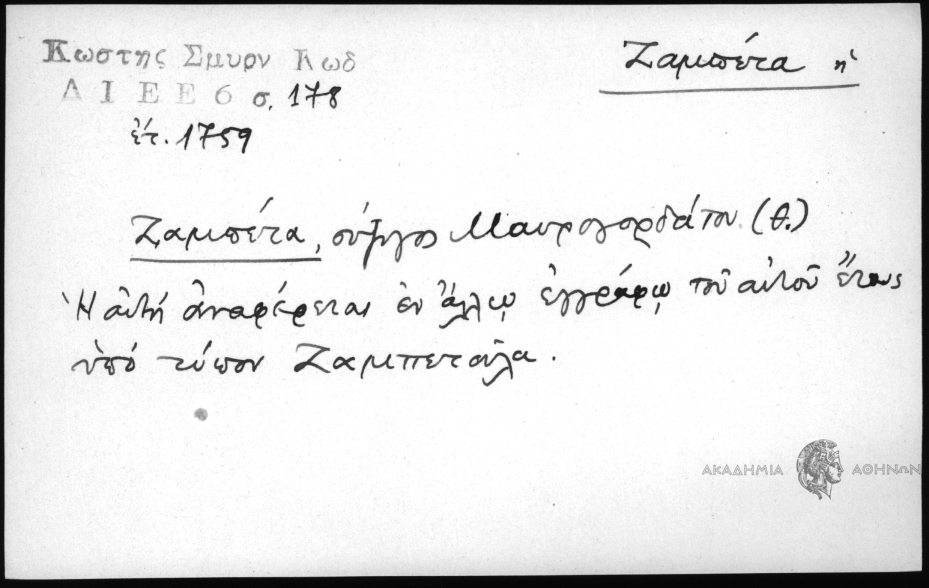 Κωστης Σμυρν Κωδ
Ζαμπέτα ἡ
Δ Ι Ε Ε 6 σ. 178
ἔτ. 1759
Ζαμπέτα, σύζυγος Μαυρογορδάτου (θ.)
Ἡ αὐτή ἀναφέρεται ἐν ἄλλῳ ἐγγράφῳ τοῦ αὐτοῦ ἔτους
ὑπό τύπον Ζαμπετούλα.
ΑΚΑΔΗΜΙΑ ΑΘΗΝΩΝ